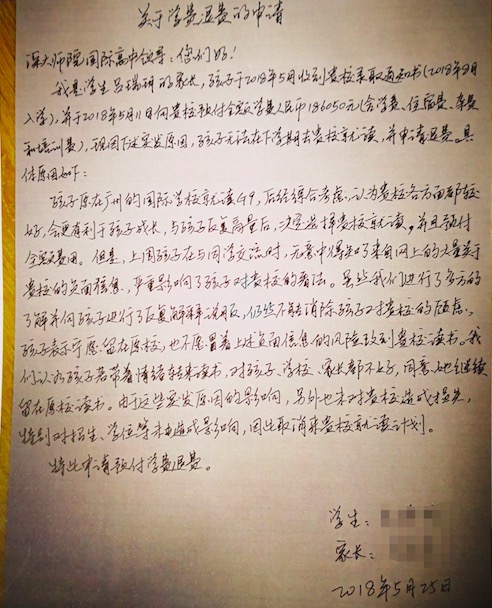 关于学费退费的申请
深大师院国际高中领导：您们好！
我是学生吕瑞玥的家长，孩子于2018年5月收到贵校录取通知书（2018年9月
入学），并于2018年5月11日向贵校预付全额学费人民币186050元（含学费、住宿费、车费
和培训费），现因下述突发原因，孩子无法在下学期去贵校就读，并申请退费。具
体原因如下：
孩子原在广州的国际学校就读G9，后经综合考虑，认为贵校各方面都较
好，会更有利于孩子成长，与孩子反复商量后，决定选择贵校就读，并且预付
全额费用。但是，上周孩子在与同学交流时，无意中得知了来自网上的大量关于
贵校的负面信息，严重影响了孩子对贵校的看法。虽然我们进行了多方的
了解并向孩子进行了反复解释说服，仍然不能消除孩子对贵校的顾虑。
孩子表示宁愿留在原校，也不愿冒着上述负面信息的风险改到贵校读书。我
们认为孩子若带着情绪转来读书，对孩子、学校、家长都不好，同意她继续
留在原校读书。由于这些突发原因的影响，另外也未对贵校造成损失，
特别对招生、学位等未造成影响，因此取消来贵校就读计划。
特此申请预付学费退费。
学生：
家长：
2018年5月25日